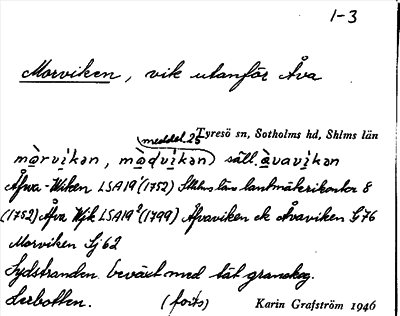 1-3
Morviken, vik utanför Åva
Tyresö sn, Sotholms hd, Shlms län
meddel. 25
mòrvi̇kən, mòdvi̇kən) säll. àvavi̇kən
Åfwa-Wiken LSA19¹(1752) Sthlms läns lantmäterikontor 8
(1752) Åfva Wjk LSA19²(1799) Åfvaviken ek Åvaviken G76
Morviken Sj 62
Sydstranden beväxt med tät granskog.
Lerbotten. (forts)
Karin Grafström 1946